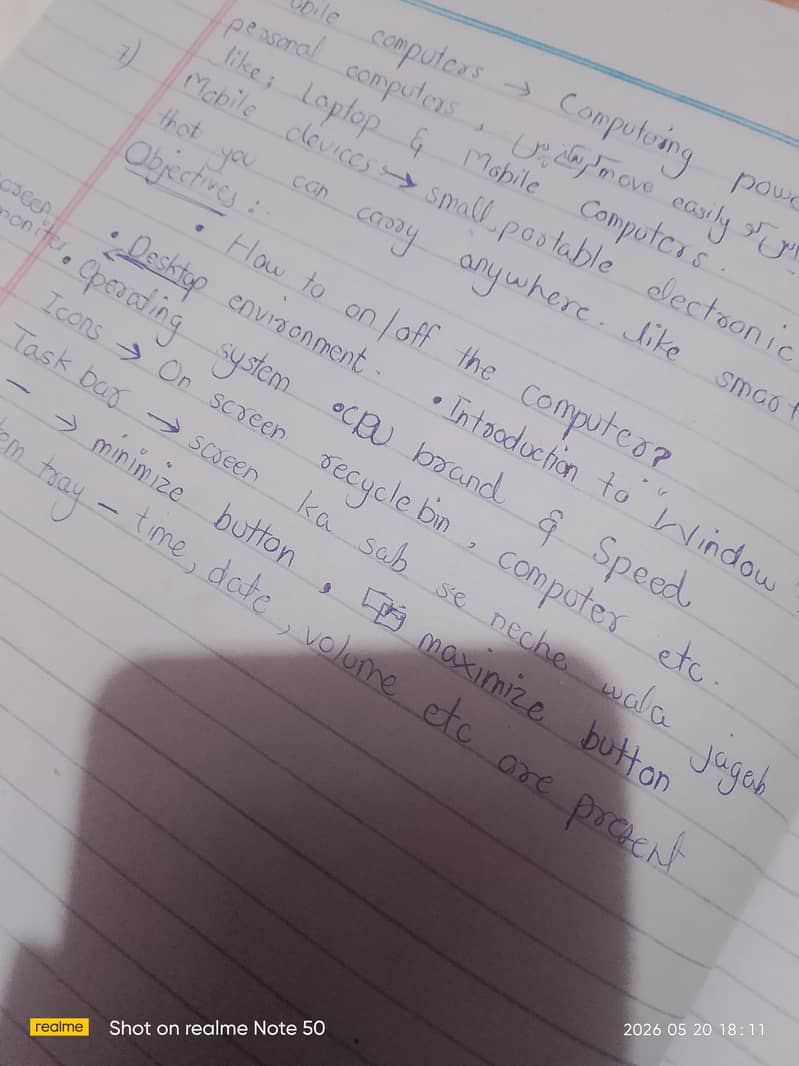 computers → Computing
personal computers, move easily
7) like; Laptop & Mobile Computers.
Mobile devices → small, portable electronic
that you can carry anywhere. like smart
Objectives:
• How to on/off the computer?
• Desktop environment. • Introduction to "Window
• Operating system • CPU brand & Speed
Icons → On screen recycle bin, computer etc.
Task bar → screen ka sab se neche wala jagah
— → minimize button, maximize button
tray – time, date, volume etc are present
realme Shot on realme Note 50
2026 05 20 18:11